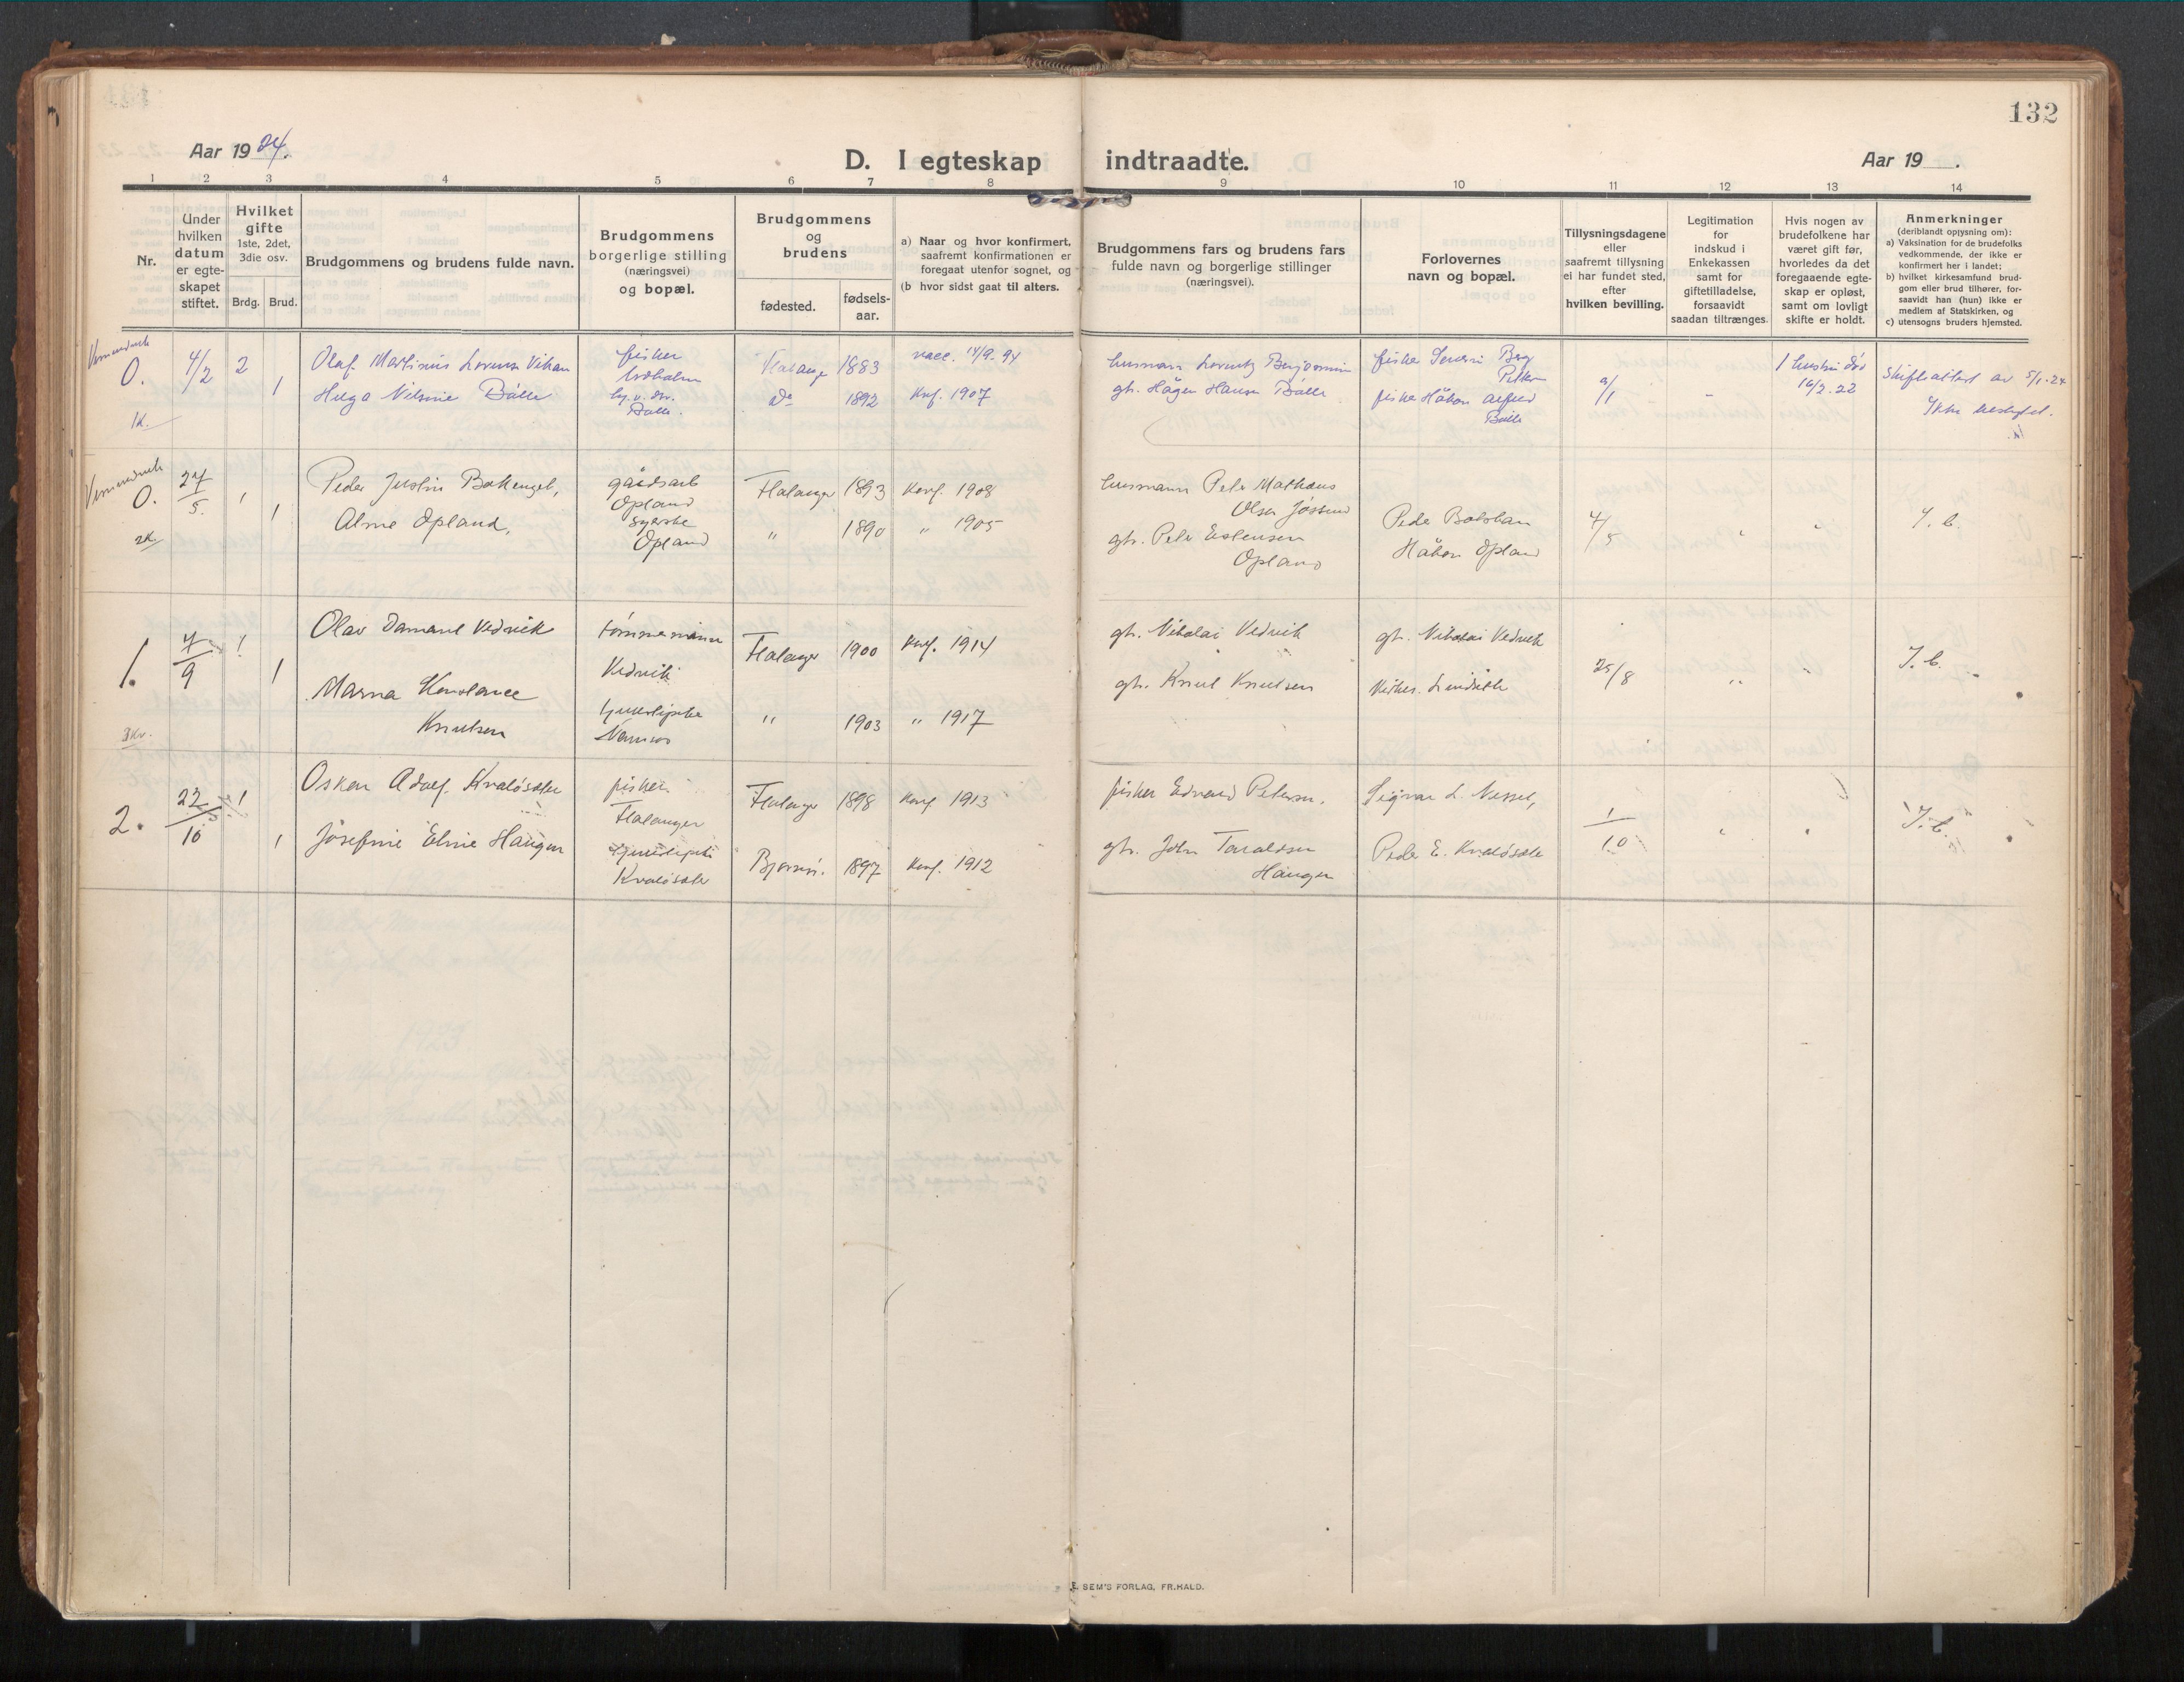 132
Aar 1924.
D. I egteskap indtraadte.
Aar 19 .
1 2 3 4 5 6 7 8 9 10 11 12 13 14
Nr.
Under
hvilken
datum
er egte-
skapet
stiftet.
Hvilket
gifte
1ste, 2det,
3die osv.
Brdg. Brud.
Brudgommens og brudens fulde navn.
Brudgommens
borgerlige stilling
(næringsvei)
og bopæl.
Brudgommens
og
brudens
fødested.
fødsels-
aar.
a) Naar og hvor konfirmert,
saafremt konfirmationen er
foregaat utenfor sognet, og
(b hvor sidst gaat til alters.
Brudgommens fars og brudens fars
fulde navn og borgerlige stillinger
(næringsvei).
Forlovernes
navn og bopæl.
Tillysningsdagene
eller
saafremt tillysning
ei har fundet sted,
efter
hvilken bevilling.
Legitimation
for
indskud i
Enkekassen
samt for
giftetilladelse,
forsaavidt
saadan tiltrænges.
Hvis nogen av
brudefolkene har
været gift før,
hvorledes da det
foregaaende egte-
skap er opløst,
samt om lovligt
skifte er holdt.
Anmerkninger
(deriblandt opjysning om):
a) Vaksination for de brudefolks
vedkommende, der ikke er
konfirmert her i landet;
b) hvilket kirkesamfund brud-
gom eller brud tilhører, for-
saavidt han (hun) ikke er
medlem af Statskirken, og
c) utensogns bruders hjemsted.
0. 4/2 2 1
Olaf Martinus Lorents Vikan
Helga Nilsine Bølle
1k.
fisker
1883
Do 1892
vacc. 14/9. 94
Knf. 1907
husmann Lorentz Benjaminsen
gb. Hågen Hansen Bølle
fisker Severin Berg
fisker Håkon Alfred
Bølle
1 hustru død
16/2. 22
Skifteattest av 5/1. 24
Ikke beslegtet.
0. 27/5. 1 1
Peder Justin
Alme Opland,
2k.
gårdsarb
Opland
syerske
Opland
Flatanger 1893 Konf. 1908
" 1890 " 1905
husmann Peter Mathæus
Olsen Jøssund
gb. Peter Estensen
Opland
Peder
Håkon Opland
4/5 " "
I. b.
1. 7/9 1 1
Olav Damand Vedvik
Marna Konstance
Knutsen
3kv.
tømmermann
Vedvik
tjenestepike
Namsos
Flatanger 1900 Knf. 1914
" 1903 " 1917
gb. Nikolai Vedvik
gb. Knut Knutsen
gb. Nikolai Vedvik
25/8 " "
I. b.
2. 22/10 1 1
Oskar Adolf Kvaløsæter
Josefine Eline Haugen
fisker
Flatanger
tjenestepike
Kvaløsæter
Flatanger 1898 Konf. 1913
Bjørnør. 1897 Konf. 1912
fisker Edvard Petersen.
gb. John Taraldsen
Haugen
Sigvar L. Nesset,
Peder E. Kvaløsæter
1/10 " "
I. b.
E. SEM'S FORLAG, FR.HALD.